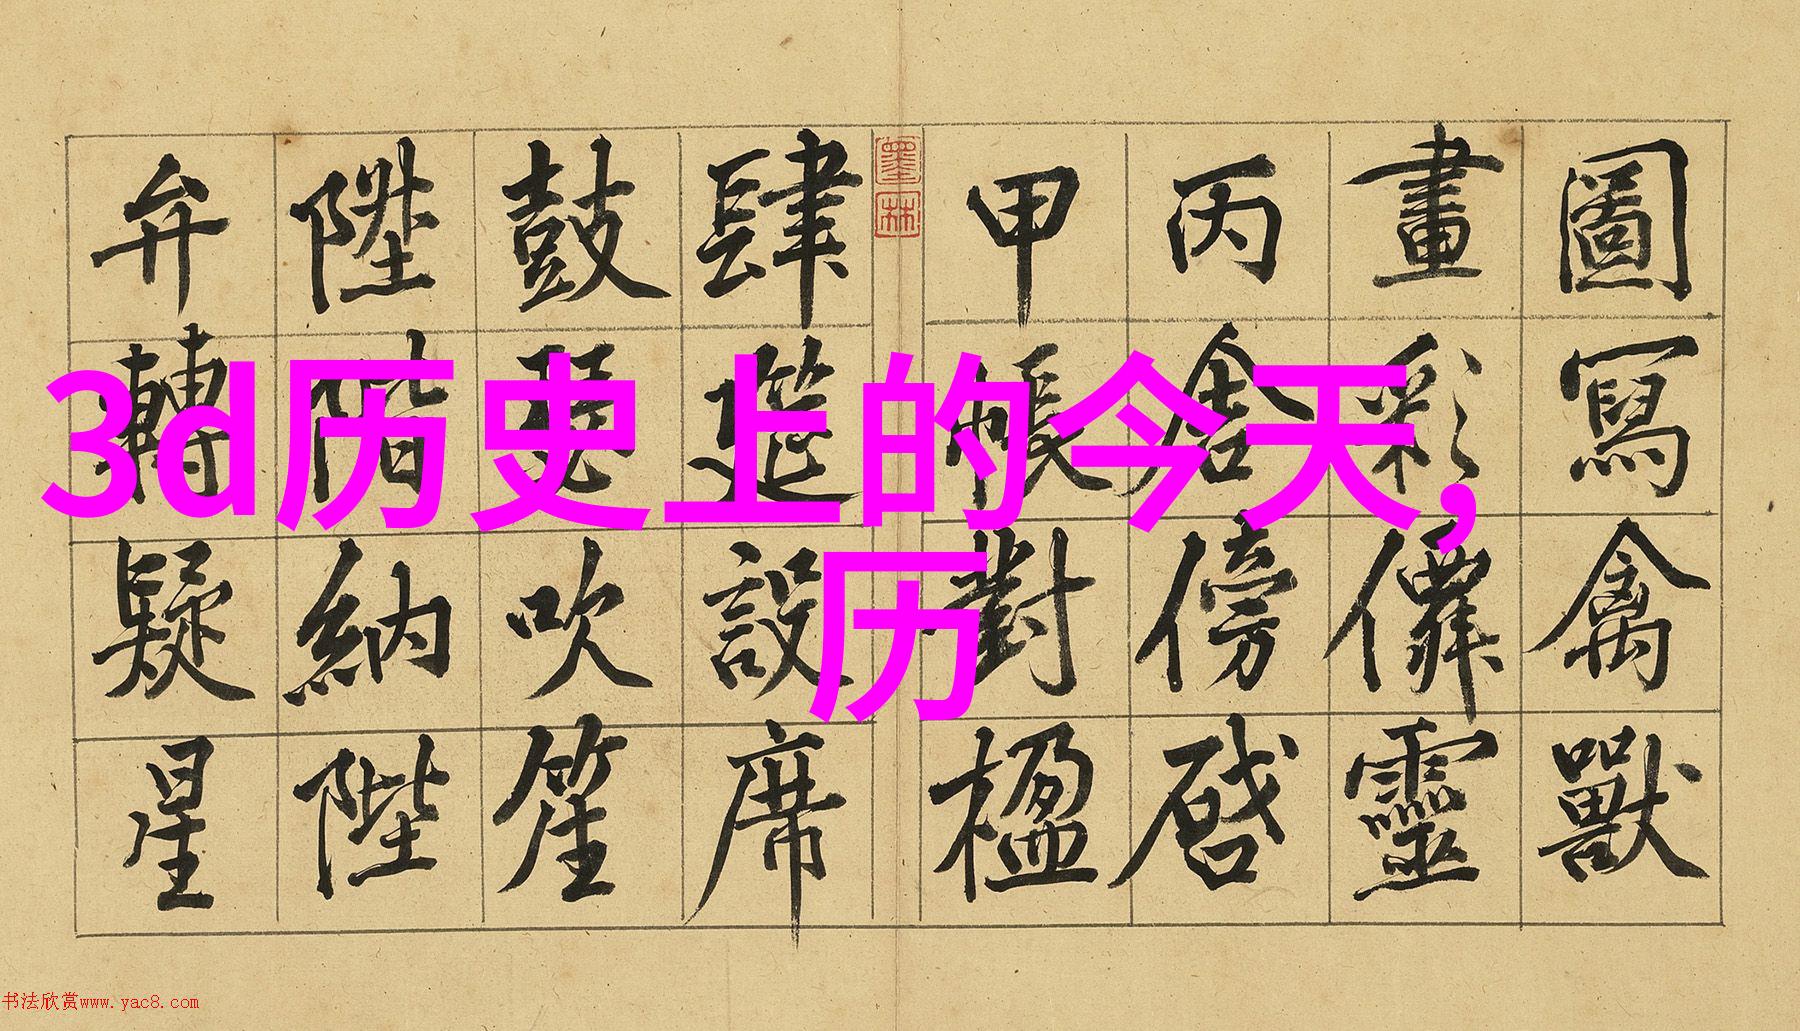 圖寫禽獸
畫彩僊靈
丙舍傍啓
甲帳對楹
墨林
肆筵設席
鼓瑟吹笙
陞階納陛
弁轉疑星
3d历史上的今天,
历
书法欣赏www.yac8.com